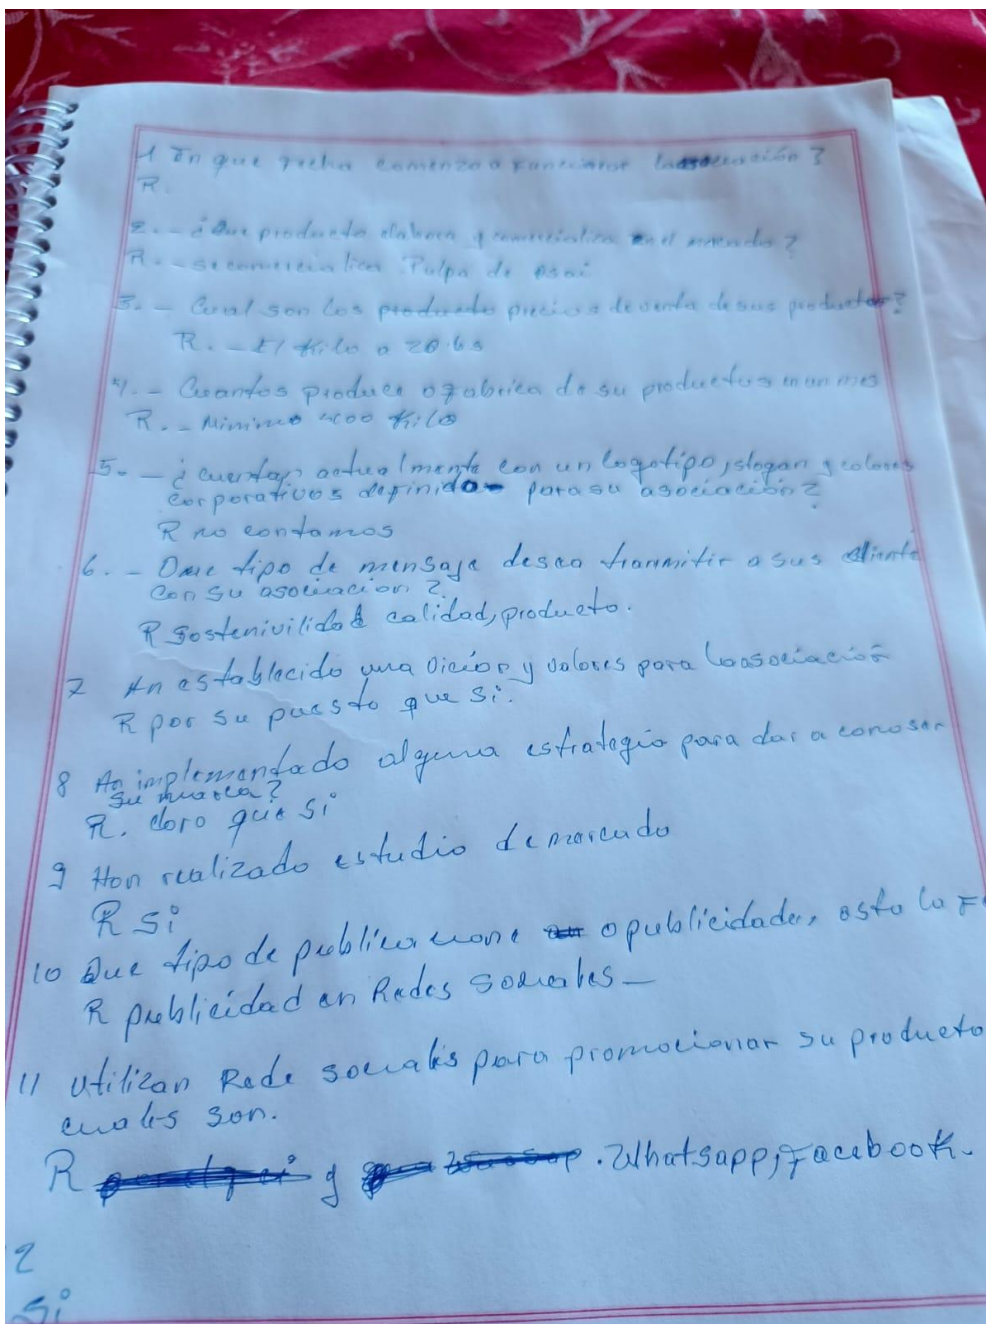 1 En que fecha comenzo a funcionar la asociación?
R.
2. - ¿Que producto elabora y comercializa en el mercado?
R. - se comercializa Pulpa de asai
3. - Cual son los producto precios de venta de sus productos?
R. - El kilo a 20 bs
4. - Cuantos produce o fabrica de su productos en un mes
R. - Minimo 400 kilo
5. - ¿cuentan actualmente con un logotipo, slogan y colores
corporativos definidos para su asociación?
R no contamos
6. - Que tipo de mensaje desea tranmitir a sus cliente
con su asociacion?
R Sostenivilidad calidad, producto.
7 An establecido una Vicion y valores para la asociación
R por su puesto que si.
8 An implementado alguna estrategia para dar a conoser
su marca?
R. claro que si
9 Han realizado estudio de mercado
R Si
10 Que tipo de publicacione o publicidades, asta la F
R publicidad en Redes sociales -
11 utilizan Rede sociales para promocionar su producto
cuales son.
R y . Whatsapp, Facebook.
2
Si